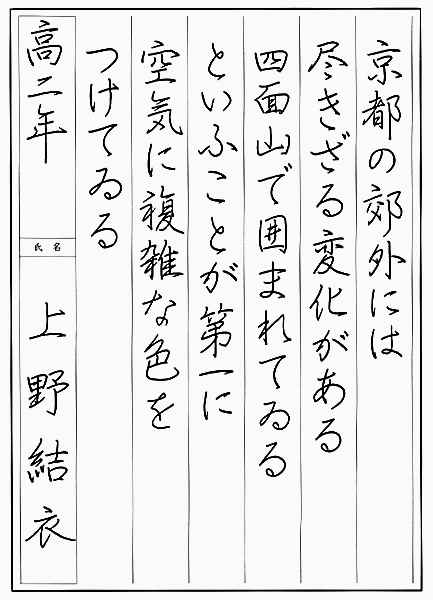 京都の郊外には
尽きざる変化がある
四面山で囲まれてゐる
といふことが第一に
空気に複雑な色を
つけてゐる
高二年
氏名
上野結衣